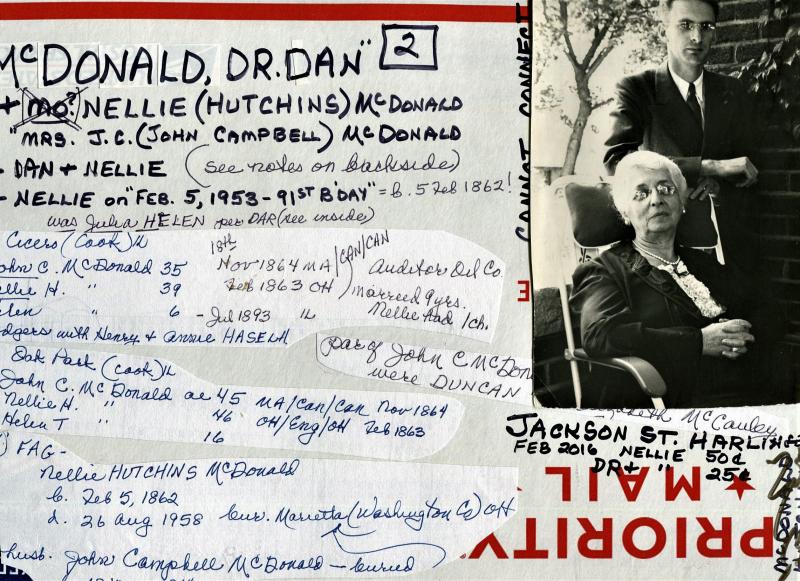 McDONALD, DR. DAN" 2
+ mo? NELLIE (HUTCHINS) McDONALD
"MRS. J.C. (JOHN CAMPBELL) McDONALD
- DAN + NELLIE (see notes on backside)
- NELLIE on "FEB. 5, 1953 - 91ST B'DAY" = b. 5 Feb 1862!
was Julia HELEN per DAR (see inside)
Cicero (Cook) IL
John C. McDonald 35 18th Nov 1864 MA/CAN/CAN Auditor Oil Co.
Nellie H. " 39 Feb 1863 OH married 9 yrs.
Helen " 6 - Jul 1893 IL Nellie had 1 ch.
lodgers with Henry & Annie
par of John C McDon
were DUNCAN
Oak Park (Cook) IL
John C. McDonald ae 45 MA/Can/Can Nov 1864
Nellie H. " 46 OH/Eng/OH Feb 1863
Helen T " 16
) FAG -
Nellie HUTCHINS McDonald
b. Feb 5, 1862
d. 26 Aug 1958 bur. Marietta (Washington Co) OH
husb. John Campbell McDonald - buried
CANNOT CONNECT
E
McCauley
JACKSON ST. HARLIN
FEB 2016 NELLIE 50¢
DR + " 25¢
★ MAIL
PRIORITY
McDONALD